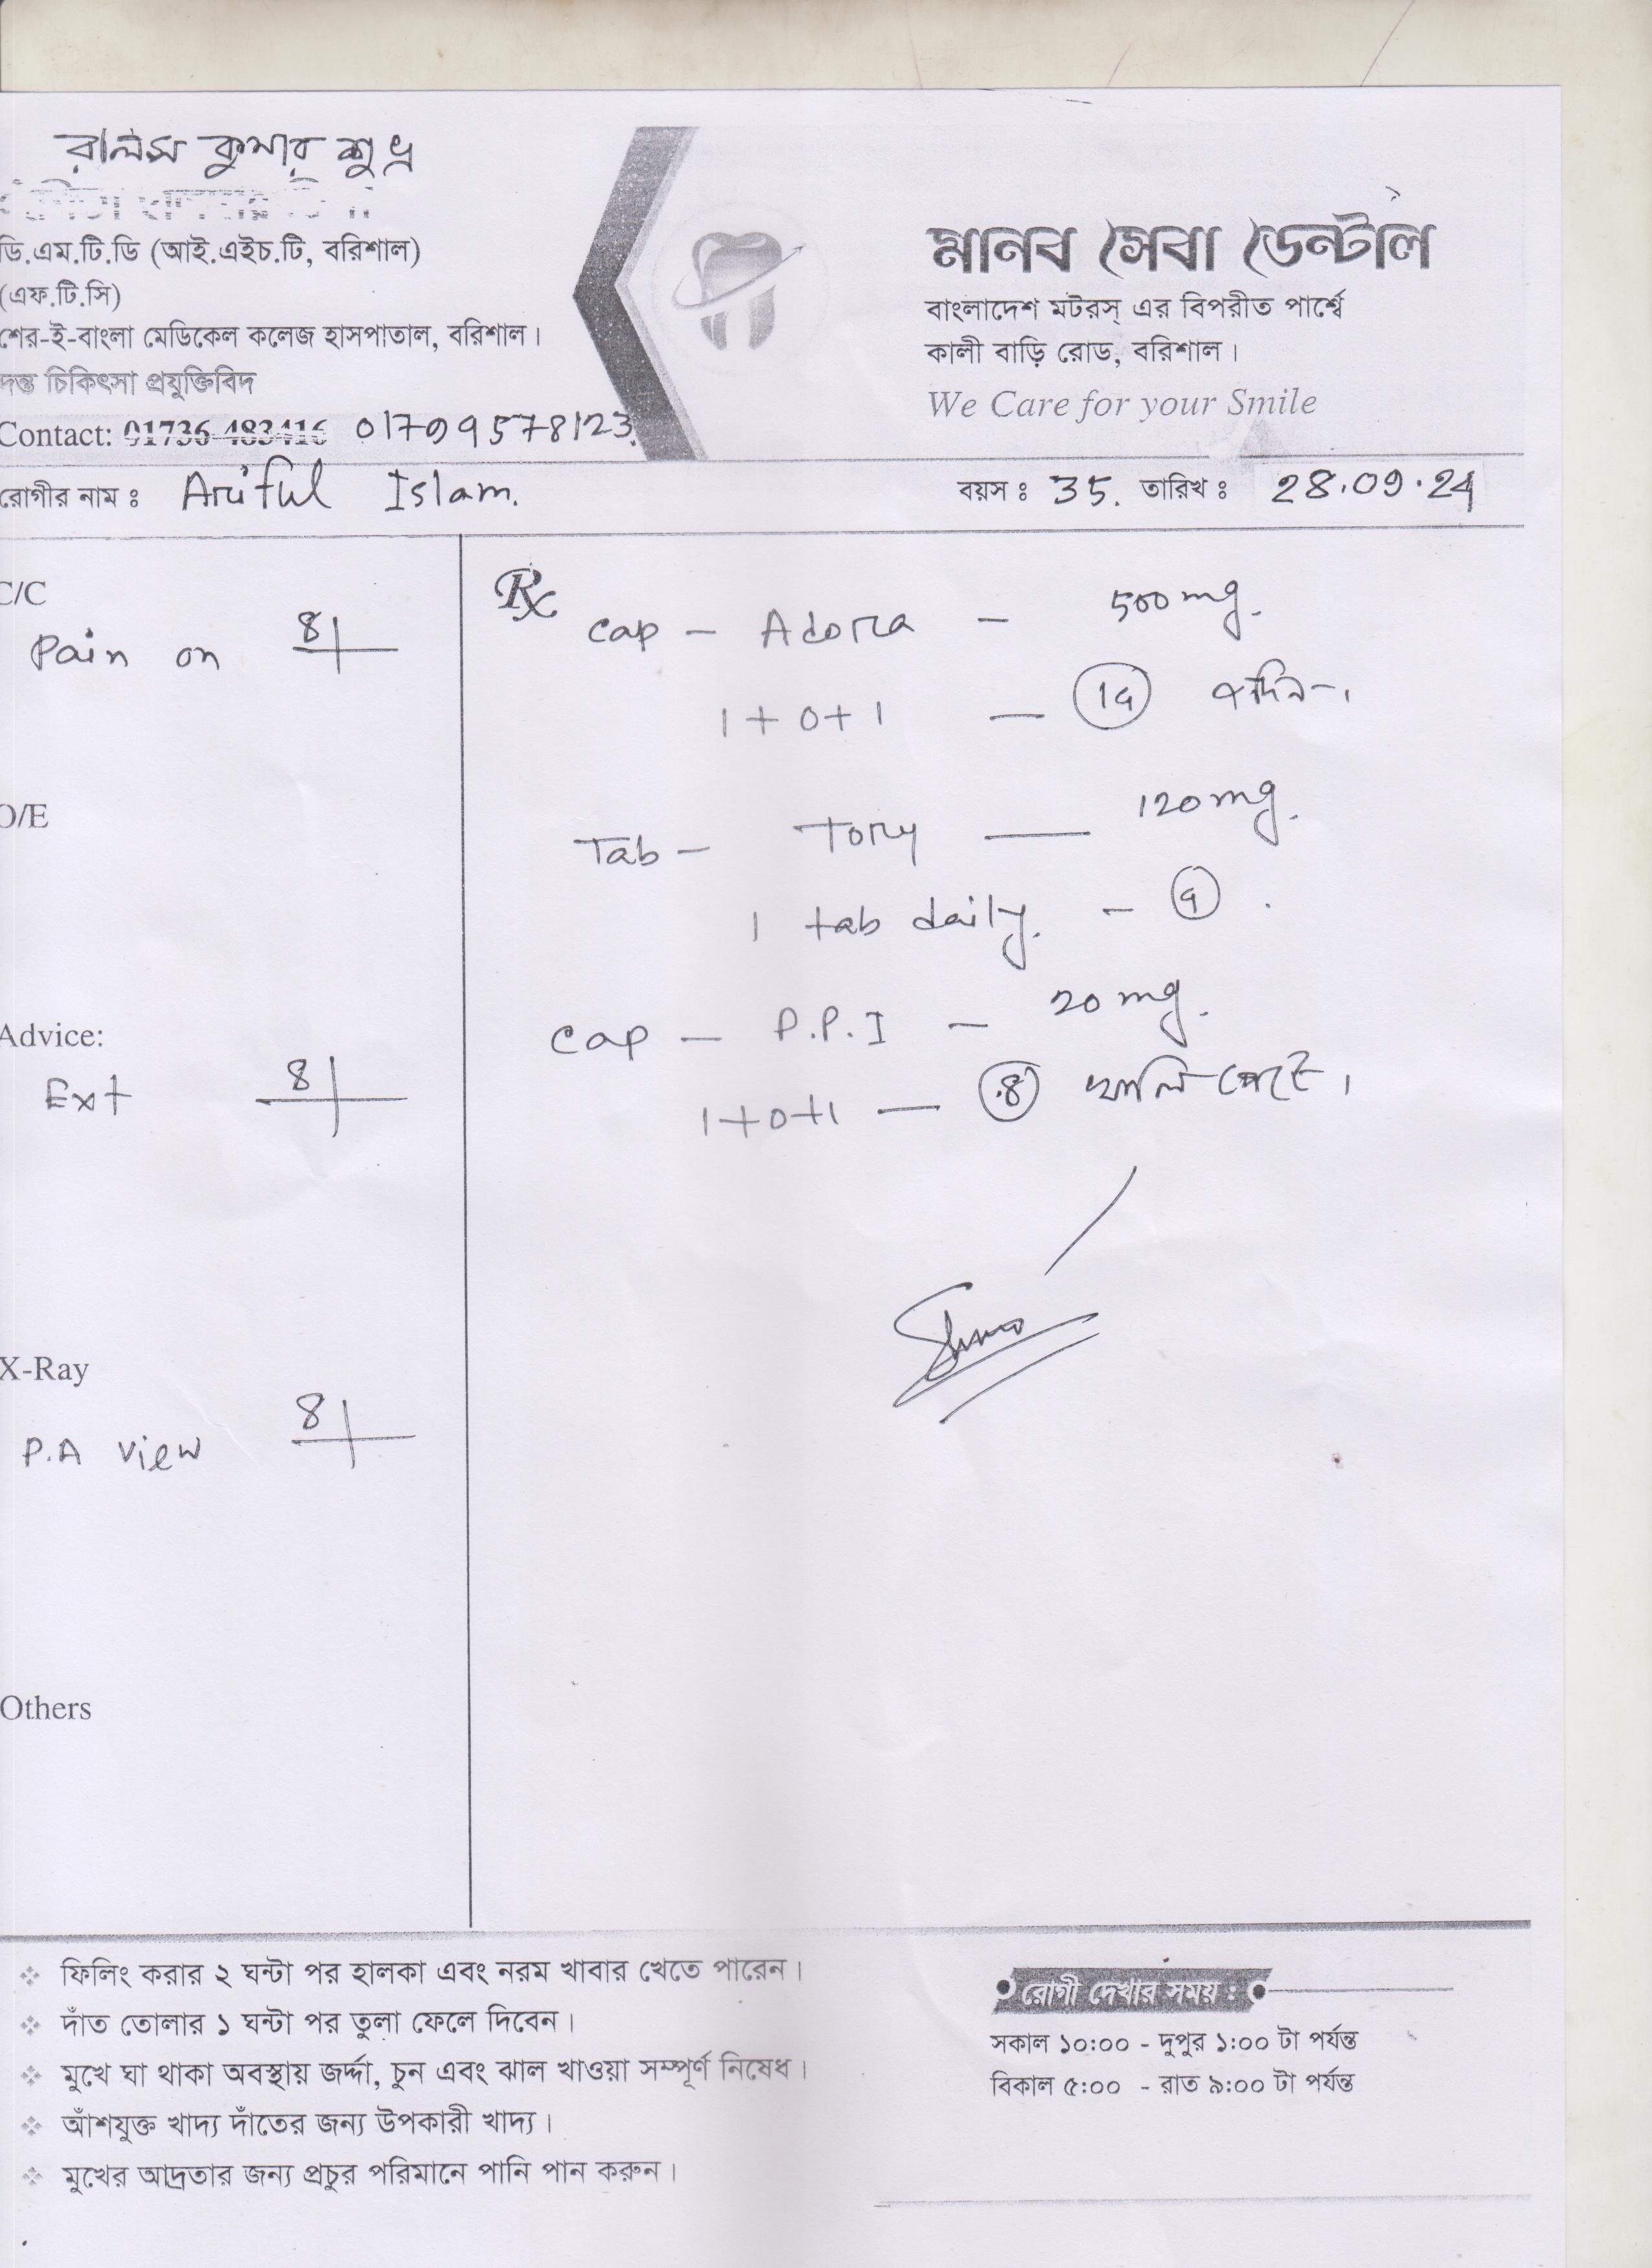 কুমার শুভ্র
ডি.এম.টি.ডি (আই.এইচ.টি, বরিশাল)
(এফ.টি.সি)
শের-ই-বাংলা মেডিকেল কলেজ হাসপাতাল, বরিশাল।
দন্ত চিকিৎসা প্রযুক্তিবিদ
Contact: 01736-483416 01709578123
মানব সেবা ডেন্টাল
বাংলাদেশ মটরস্ এর বিপরীত পার্শ্বে
কালী বাড়ি রোড, বরিশাল।
We Care for your Smile
রোগীর নাম ঃ Ariful Islam. বয়স ঃ 35. তারিখ ঃ 28.09.24
C/C
Pain on 8
O/E
Advice:
Ext 8
X-Ray
P.A view 8
Others
Rx
Cap - Adora - 500 mg.
1+0+1 — 14 ৭ দিন।
Tab - Tory — 120 mg.
1 tab daily. -
Cap - P.P.I - 20 mg.
1+0+1 — 8 খালি পেটে।
❖ ফিলিং করার ২ ঘন্টা পর হালকা এবং নরম খাবার খেতে পারেন।
❖ দাঁত তোলার ১ ঘন্টা পর তুলা ফেলে দিবেন।
❖ মুখে ঘা থাকা অবস্থায় জর্দ্দা, চুন এবং ঝাল খাওয়া সম্পূর্ণ নিষেধ।
❖ আঁশযুক্ত খাদ্য দাঁতের জন্য উপকারী খাদ্য।
❖ মুখের আদ্রতার জন্য প্রচুর পরিমানে পানি পান করুন।
রোগী দেখার সময় ঃ
সকাল ১০:০০ - দুপুর ১:০০ টা পর্যন্ত
বিকাল ৫:০০ - রাত ৯:০০ টা পর্যন্ত